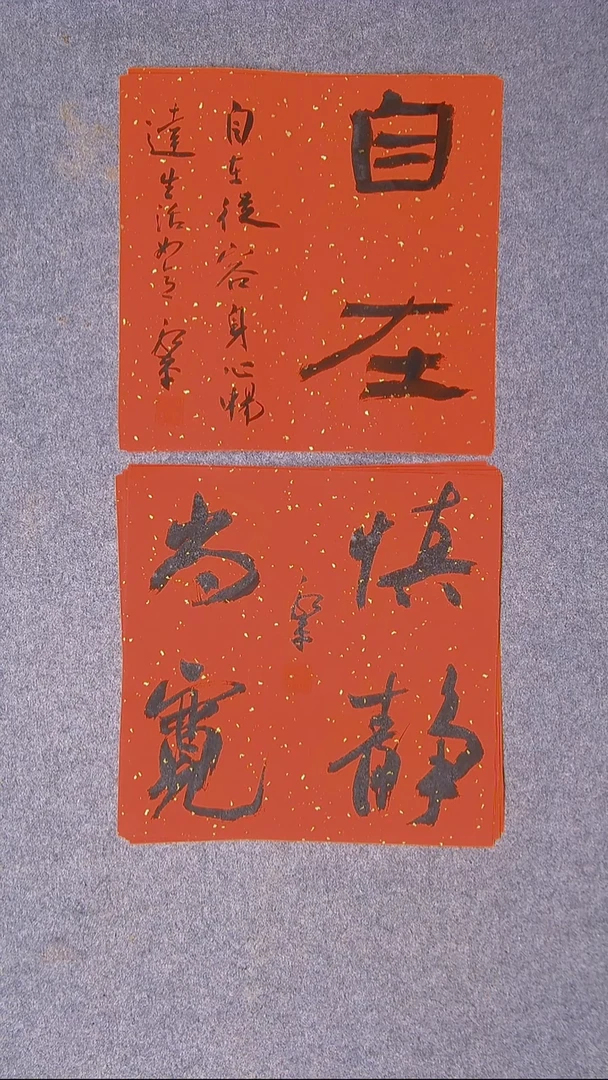 自在
自在從容身心暢
達生活如意
慎静
尚寬